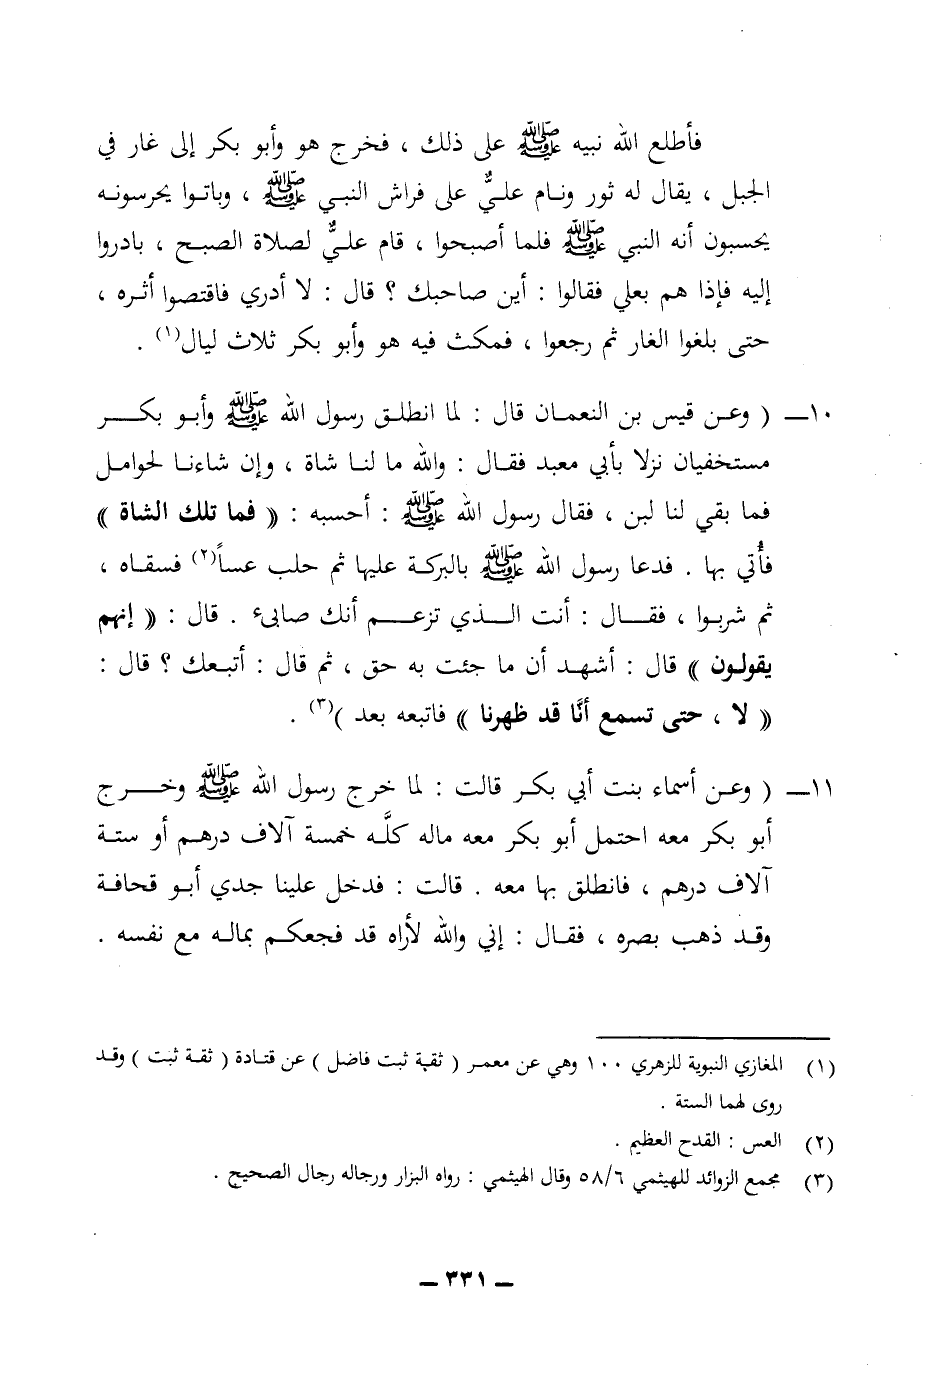 فأطلع الله نبيه ﷺ على ذلك ، فخرج هو وأبو بكر إلى غار في
الجبل ، يقال له ثور ونام عليٌّ على فراش النبي ﷺ ، وباتوا يحرسونه
يحسبون أنه النبي ﷺ فلما أصبحوا ، قام عليٌّ لصلاة الصبح ، بادروا
إليه فإذا هم بعلي فقالوا : أين صاحبك ؟ قال : لا أدري فاقتصوا أثره ،
حتى بلغوا الغار ثم رجعوا ، فمكث فيه هو وأبو بكر ثلاث ليال(١) .
١٠ــ ( وعن قيس بن النعمان قال : لما انطلق رسول الله ﷺ وأبو بكر
مستخفيان نزلا بأبي معبد فقال : والله ما لنا شاة ، وإن شاءنا لحوامل
فما بقي لنا لبن ، فقال رسول الله ﷺ : أحسبه : « فما تلك الشاة »
فأُتي بها . فدعا رسول الله ﷺ بالبركة عليها ثم حلب عساً(٢) فسقاه ،
ثم شربوا ، فقال : أنت الذي تزعم أنك صابىء . قال : « إنهم
يقولون » قال : أشهد أن ما جئت به حق ، ثم قال : أتبعك ؟ قال :
« لا ، حتى تسمع أنَّا قد ظهرنا » فاتبعه بعد )(٣) .
١١ــ ( وعن أسماء بنت أبي بكر قالت : لما خرج رسول الله ﷺ وخرج
أبو بكر معه احتمل أبو بكر معه ماله كلَّه خمسة آلاف درهم أو ستة
آلاف درهم ، فانطلق بها معه . قالت : فدخل علينا جدي أبو قحافة
وقد ذهب بصره ، فقال : إني والله لأراه قد فجعكم بماله مع نفسه .
(١) المغازي النبوية للزهري ١٠٠ وهي عن معمر ( ثقة ثبت فاضل ) عن قتادة ( ثقة ثبت ) وقد
روى لهما الستة .
(٢) العس : القدح العظيم .
(٣) مجمع الزوائد للهيثمي ٥٨/٦ وقال الهيثمي : رواه البزار ورجاله رجال الصحيح .
ــ ٣٣١ ــ